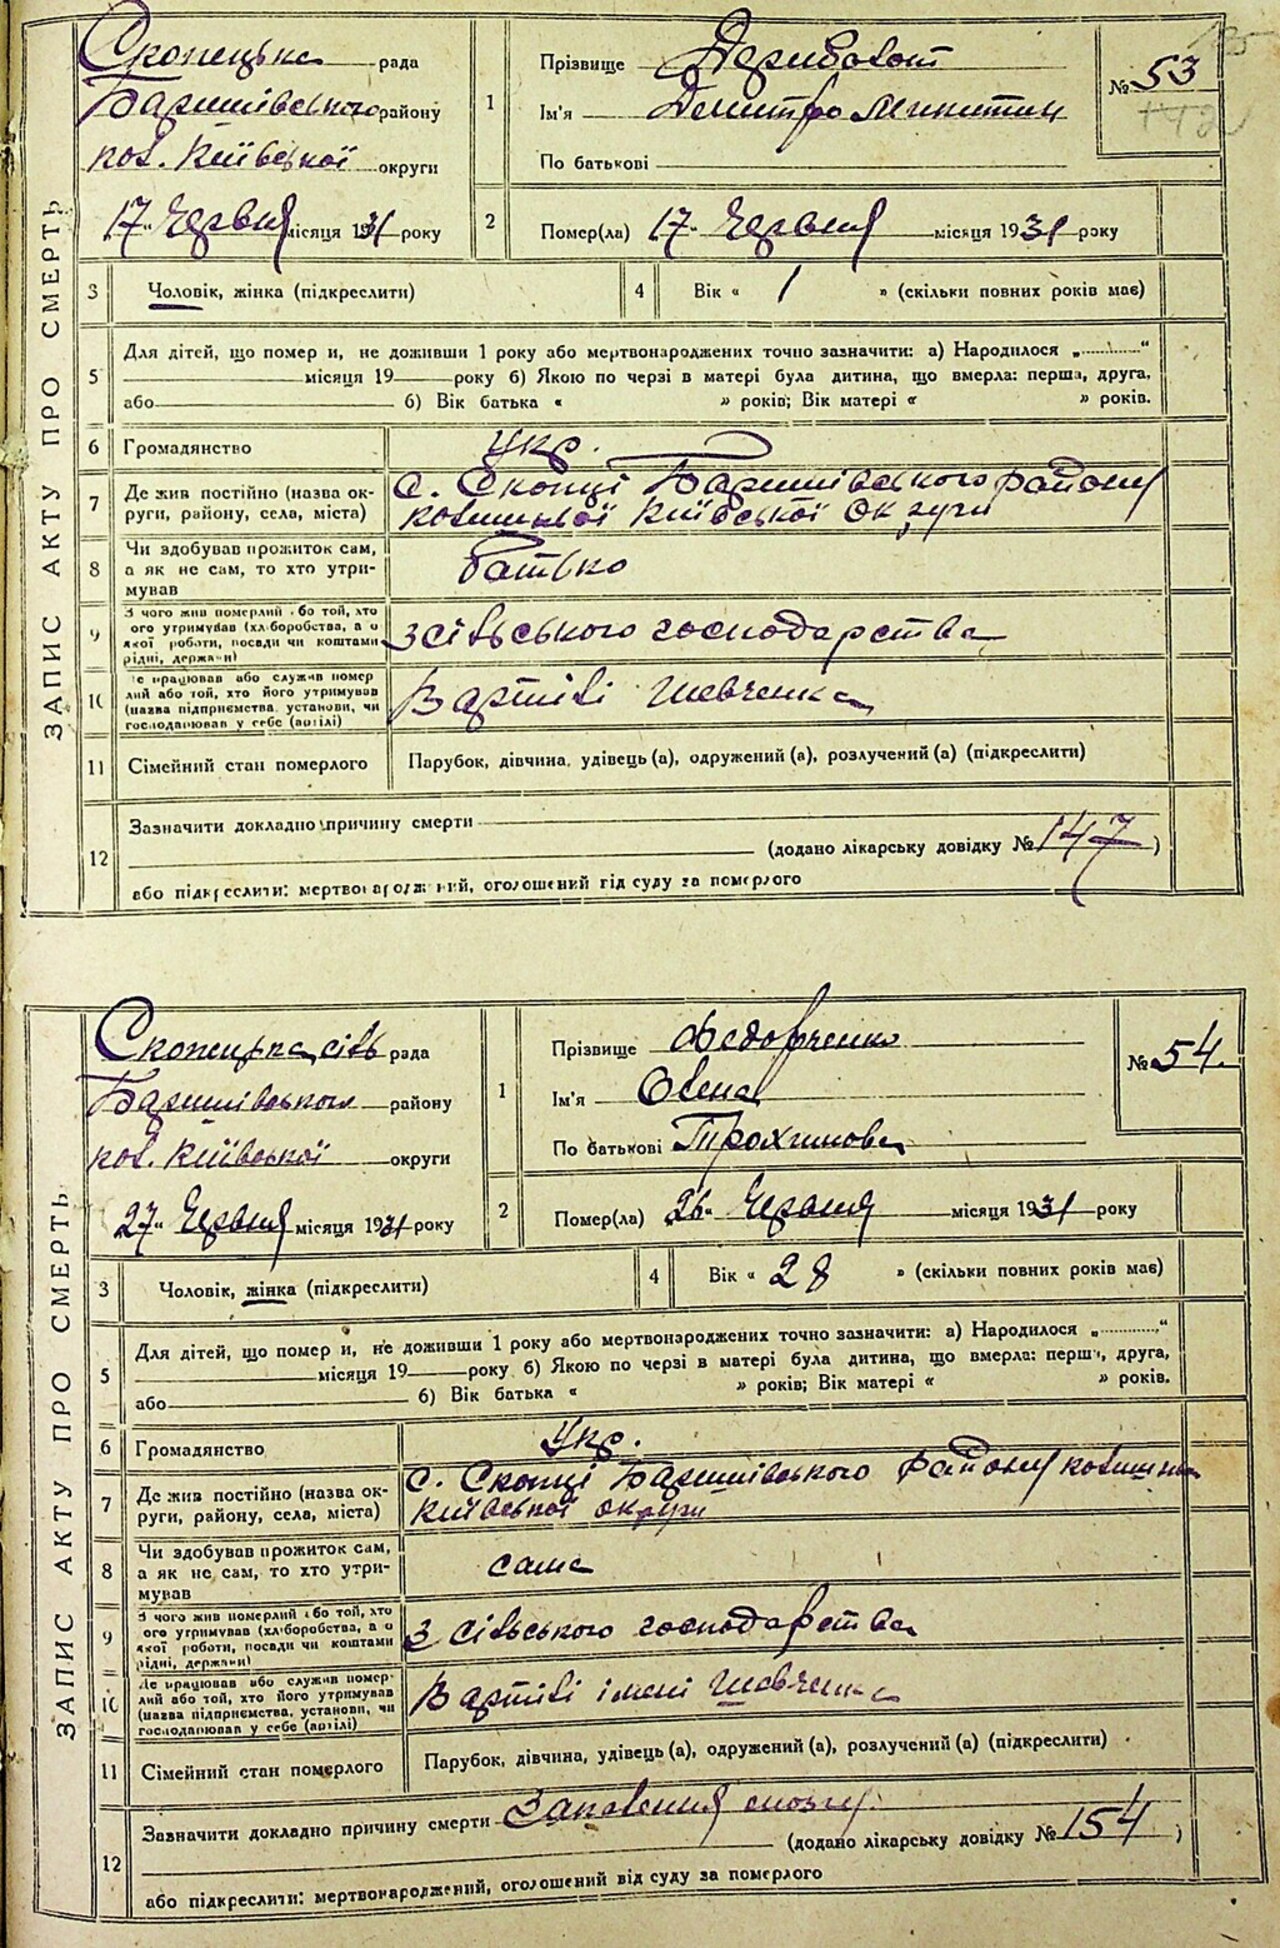 ЗАПИС АКТУ ПРО СМЕРТЬ
Скопецька рада
Баришівського району
кол. Київської округи
17 " Червня місяця 1931 року
1
Прізвище Дериволот
Ім'я Дмитро Микитин
По батькові
№ 53
142
2
Помер(ла) 17 " Червня місяця 1931 року
3 Чоловік, жінка (підкреслити)
4 Вік « 1 » (скільки повних років має)
5 Для дітей, що помер и, не доживши 1 року або мертвонароджених точно зазначити: а) Народилося „ “
місяця 19 року б) Якою по черзі в матері була дитина, що вмерла: перша, друга,
або б) Вік батька « » років; Вік матері « » років.
6 Громадянство укр.
7 Де жив постійно (назва ок-
руги, району, села, міста)
с. Скопці Баришівського району
колишньої Київської Округи
8 Чи здобував прожиток сам,
а як не сам, то хто утри-
мував
батько
9 З чого жив померлий або той, хто
ого утримував (хліборобства, а о
якої роботи, посади чи коштами
рідні, держави)
з сільського господарства
10 Де працював або служив помер
лий або той, хто його утримував
(назва підприємства, установи, чи
господарював у себе (артілі)
В артілі Шевченка
11 Сімейний стан померлого
Парубок, дівчина, удівець (а), одружений (а), розлучений (а) (підкреслити)
12 Зазначити докладно причину смерти
(додано лікарську довідку № 147 )
або підкреслити: мертвонароджений, оголошений від суду за померлого
ЗАПИС АКТУ ПРО СМЕРТЬ
Скопецька сіль рада
Баришівського району
кол. Київської округи
27 " Червня місяця 1931 року
1
Прізвище Федорченко
Ім'я Олена
По батькові Трохимова
№ 54.
2
Помер(ла) 26 " Червня місяця 1931 року
3 Чоловік, жінка (підкреслити)
4 Вік « 28 » (скільки повних років має)
5 Для дітей, що помер и, не доживши 1 року або мертвонароджених точно зазначити: а) Народилося „ “
місяця 19 року б) Якою по черзі в матері була дитина, що вмерла: перша, друга,
або б) Вік батька « » років; Вік матері « » років.
6 Громадянство Укр.
7 Де жив постійно (назва ок-
руги, району, села, міста)
с. Скопці Баришівського району колишньо
Київської округи
8 Чи здобував прожиток сам,
а як не сам, то хто утри-
мував
сама
9 З чого жив померлий або той, хто
ого утримував (хліборобства, а о
якої роботи, посади чи коштами
рідні, держави)
З сільського господарства
10 Де працював або служив помер-
лий або той, хто його утримував
(назва підприємства, установи, чи
господарював у себе (артілі)
В артілі імені Шевченка
11 Сімейний стан померлого
Парубок, дівчина, удівець (а), одружений (а), розлучений (а) (підкреслити)
12 Зазначити докладно причину смерти Запалення мозгу.
(додано лікарську довідку № 154 )
або підкреслити: мертвонароджений, оголошений від суду за померлого